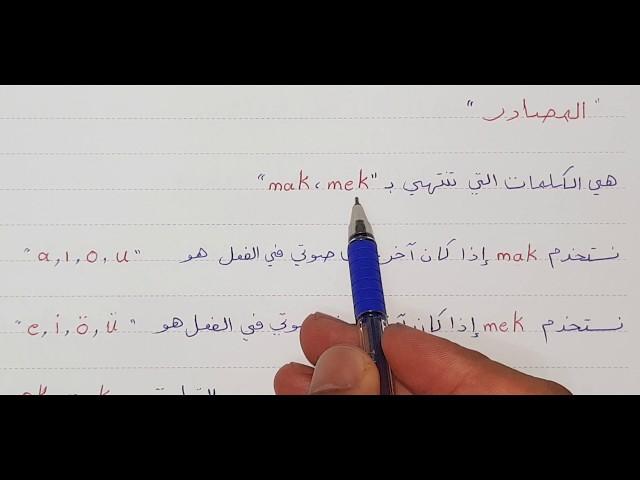 "المصادر"
هي الكلمات التي تنتهي بـ "mak، mek"
نستخدم mak إذا كان آخر صوتي في الفعل هو "a, ı, o, u"
نستخدم mek إذا كان صوتي في الفعل هو "e, i, ö, ü"